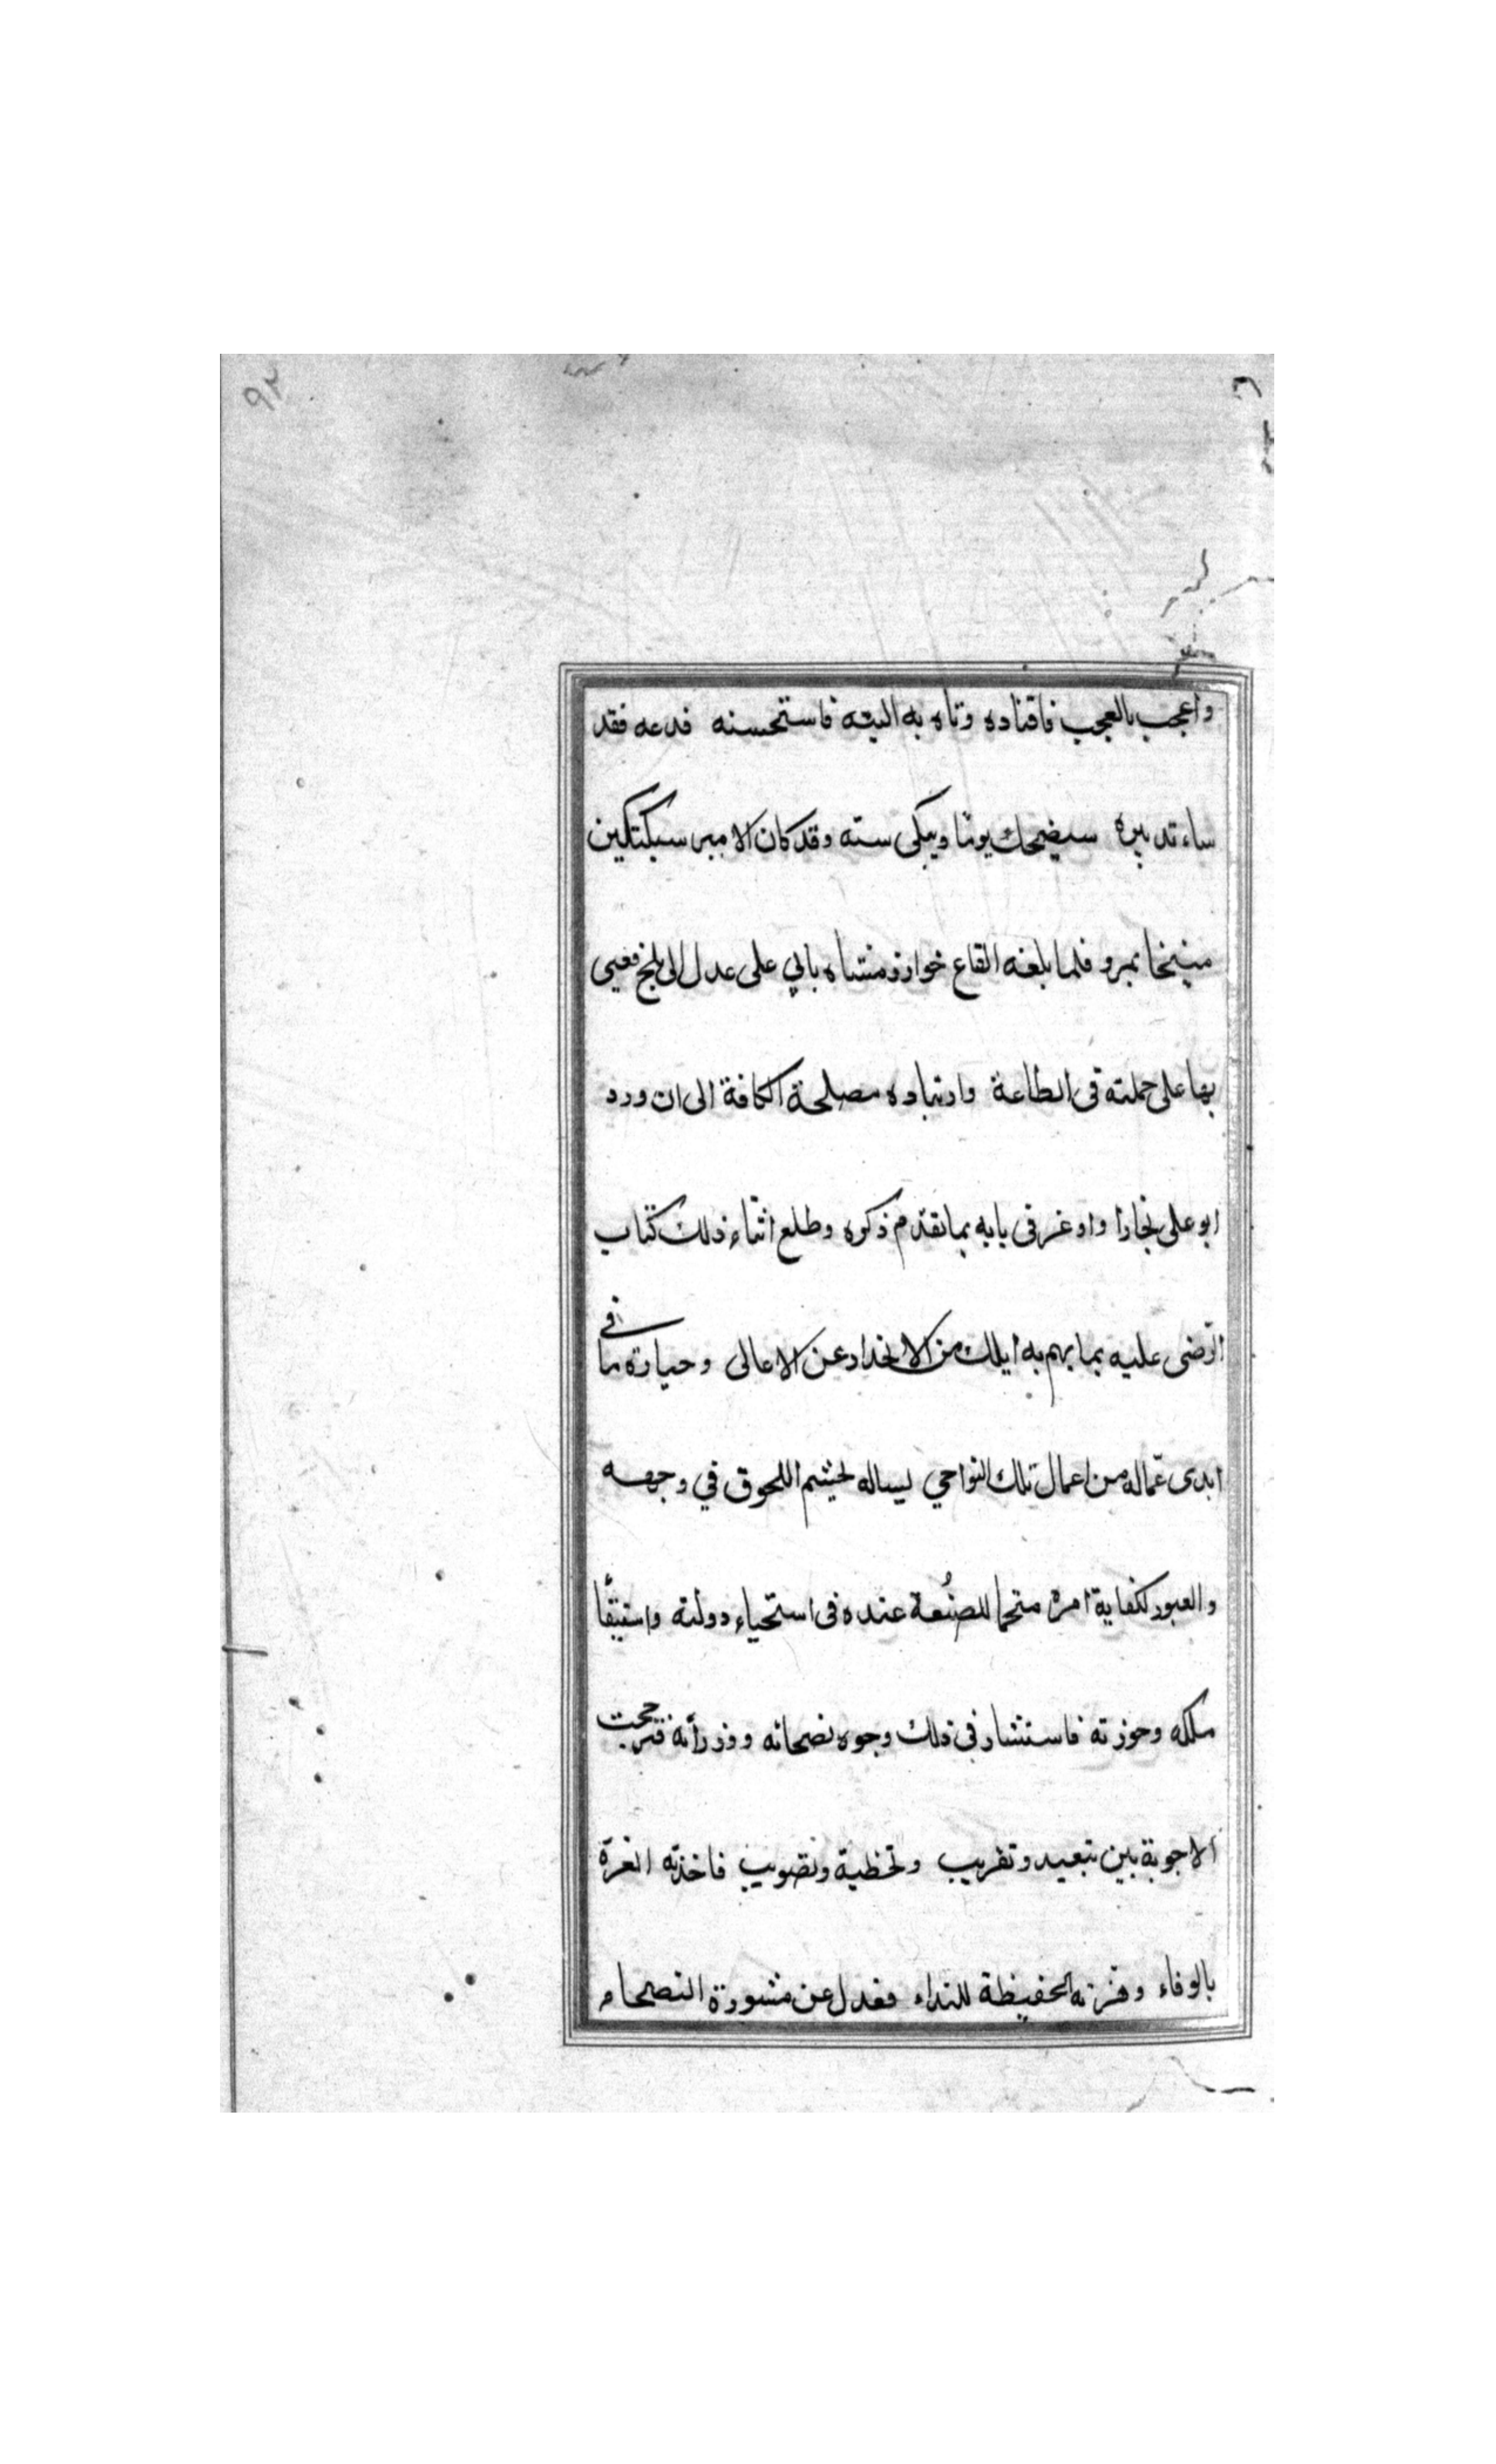 ٩٢
واعجب بالعجب فاقتاده وتاه به التيه فاستحسنه فدعه فقد
ساء تدبيره سيضحك يوما ويبكى سنه وقد كان الامير سبكتكين
منيخا بمرو فلما بلغه ايقاع خوارزمشاه بابي على عدل الى بلخ فعيى
بها على جملته فى الطاعة وارتياده مصلحة الكافة الى ان ورد
ابو على بخارا واوعز فى بابه بما تقدم ذكره وطلع اثناء ذلك كتاب
الرضى عليه بما يهم به ايلك من الانحدار عن الاعالى وحيازة ما فى
ايدى عماله من اعمال تلك النواحي يساله تجشم اللحوق في وجهه
والعبور لكفاية امره متحما للصنعة عنده فى استحياء دولته واستيقا
ملكه وحوزته فاستشار فى ذلك وجوه نصحائه ووزرائه فترجحت
الاجوبة بين تبعيد وتقريب وتخطية وتصويب فاخذته الغرة
بالوفاء وفزته الحفيظة للنداء فعدل عن مشورة النصحاء